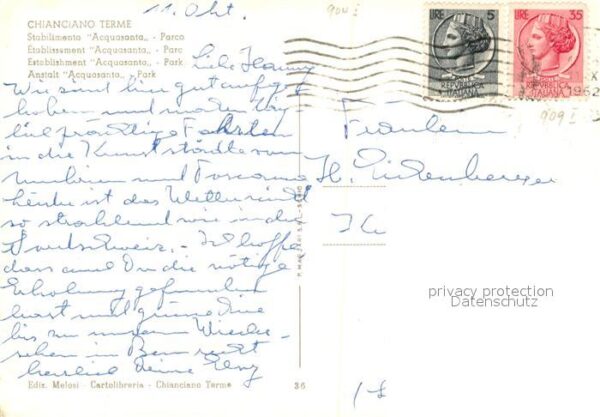 11. Okt.
904 I
CHIANCIANO TERME
Stabilimento "Acquasanta" - Parco
Établissement "Acquasanta" - Parc
Establishment "Acquasanta" - Park
Anstalt "Acquasanta" - Park
LIRE 5
REPUBBLICA ITALIANA
LIRE 35
REPUBBLICA ITALIANA
X
1962
909 I
Wir sind hier gut aufge-
hoben und machen
prächtige Fahrten
in die Kunststädte von
Umbrien und Toscana
ist das Wetter nicht
so strahlend wie in der
Südschweiz. - Ich hoffe
dass auch Du die nötige
Erholung gefunden
hast und grüsse Dich
bis zu unserem Wieder-
sehen in Bern recht
herzlich Deine
Fräulein
H.
privacy protection
Datenschutz
Ediz. Melosi - Cartolibreria - Chianciano Terme
36